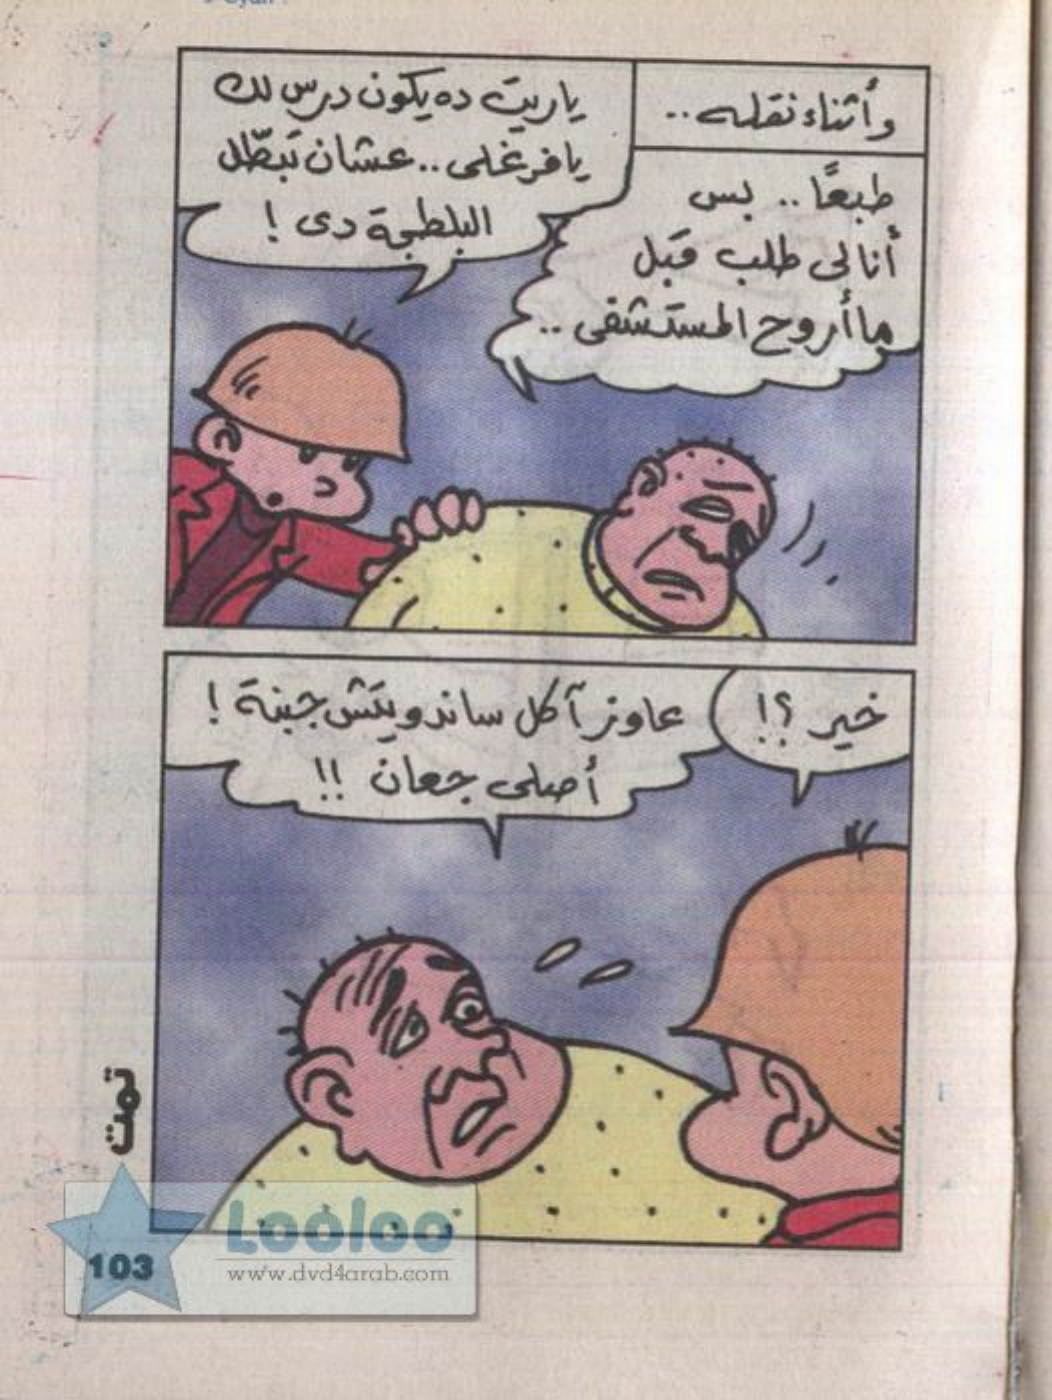 وأثناء نقله..
ياريت ده يكون درس لك
يا فرغلى.. عشان تبطّل
البلطجة دى !
طبعًا .. بس
أنا لى طلب قبل
ما أروح المستشفى ..
خير ؟!
عاوز آكل ساندويتش جبنة !
أصلى جعان !!
تمت
Looloo
www.dvd4arab.com
103